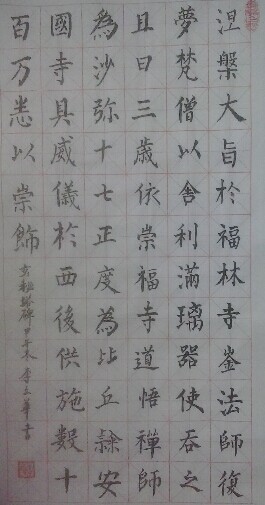 涅槃大旨於福林寺崟法師復
夢梵僧以舍利滿璃器使吞之
且曰三歲依崇福寺道悟禪師
為沙弥十七正度為比丘隸安
國寺具威儀於西後供施數十
百万悉以崇飾
玄秘塔碑 甲午冬 李 華書